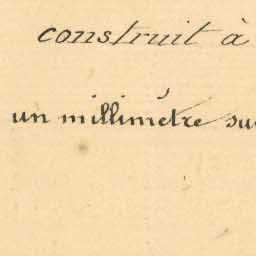 construit à
un millimétre su